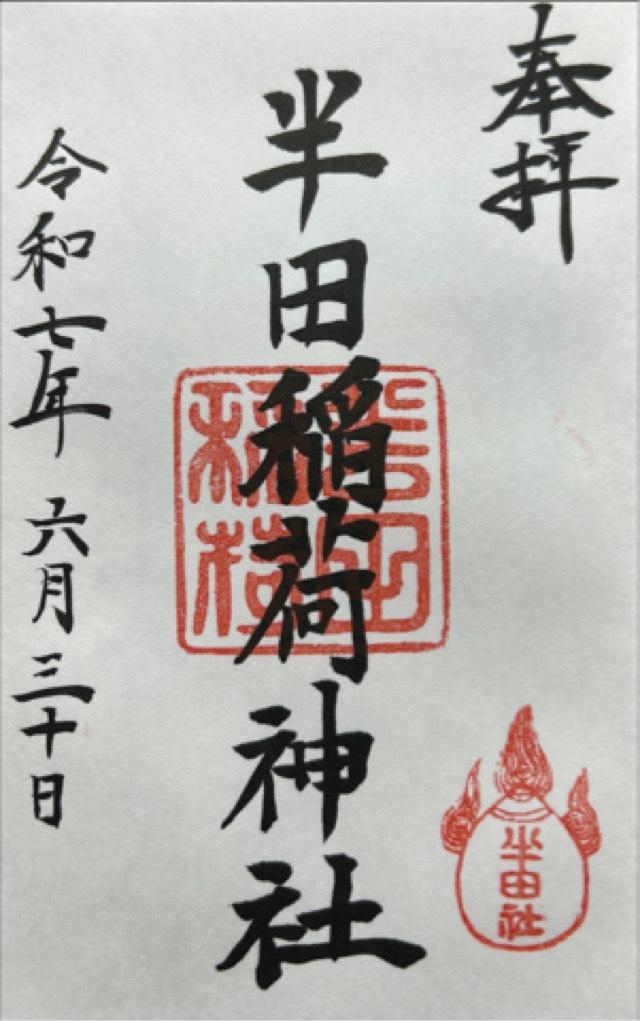 奉拝
半田稲荷神社
令和七年 六月三十日
半田社